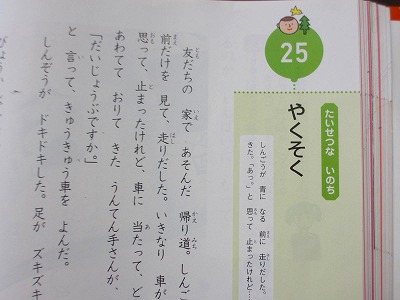 25
たいせつな いのち
やくそく
しんごうが 青に なる 前に 走りだした。
きた。「あっ。」と 思って 止まったけれど…
友だちの 家で あそんだ 帰り道。しんご
前だけを 見て、走りだした。いきなり 車が
思って、止まったけれど、車に 当たって、ど
あわてて おりて きた うんてん手さんが、
「だいじょうぶですか。」
と 言って、きゅうきゅう車を よんだ。
しんぞうが ドキドキした。足が ズキズキ